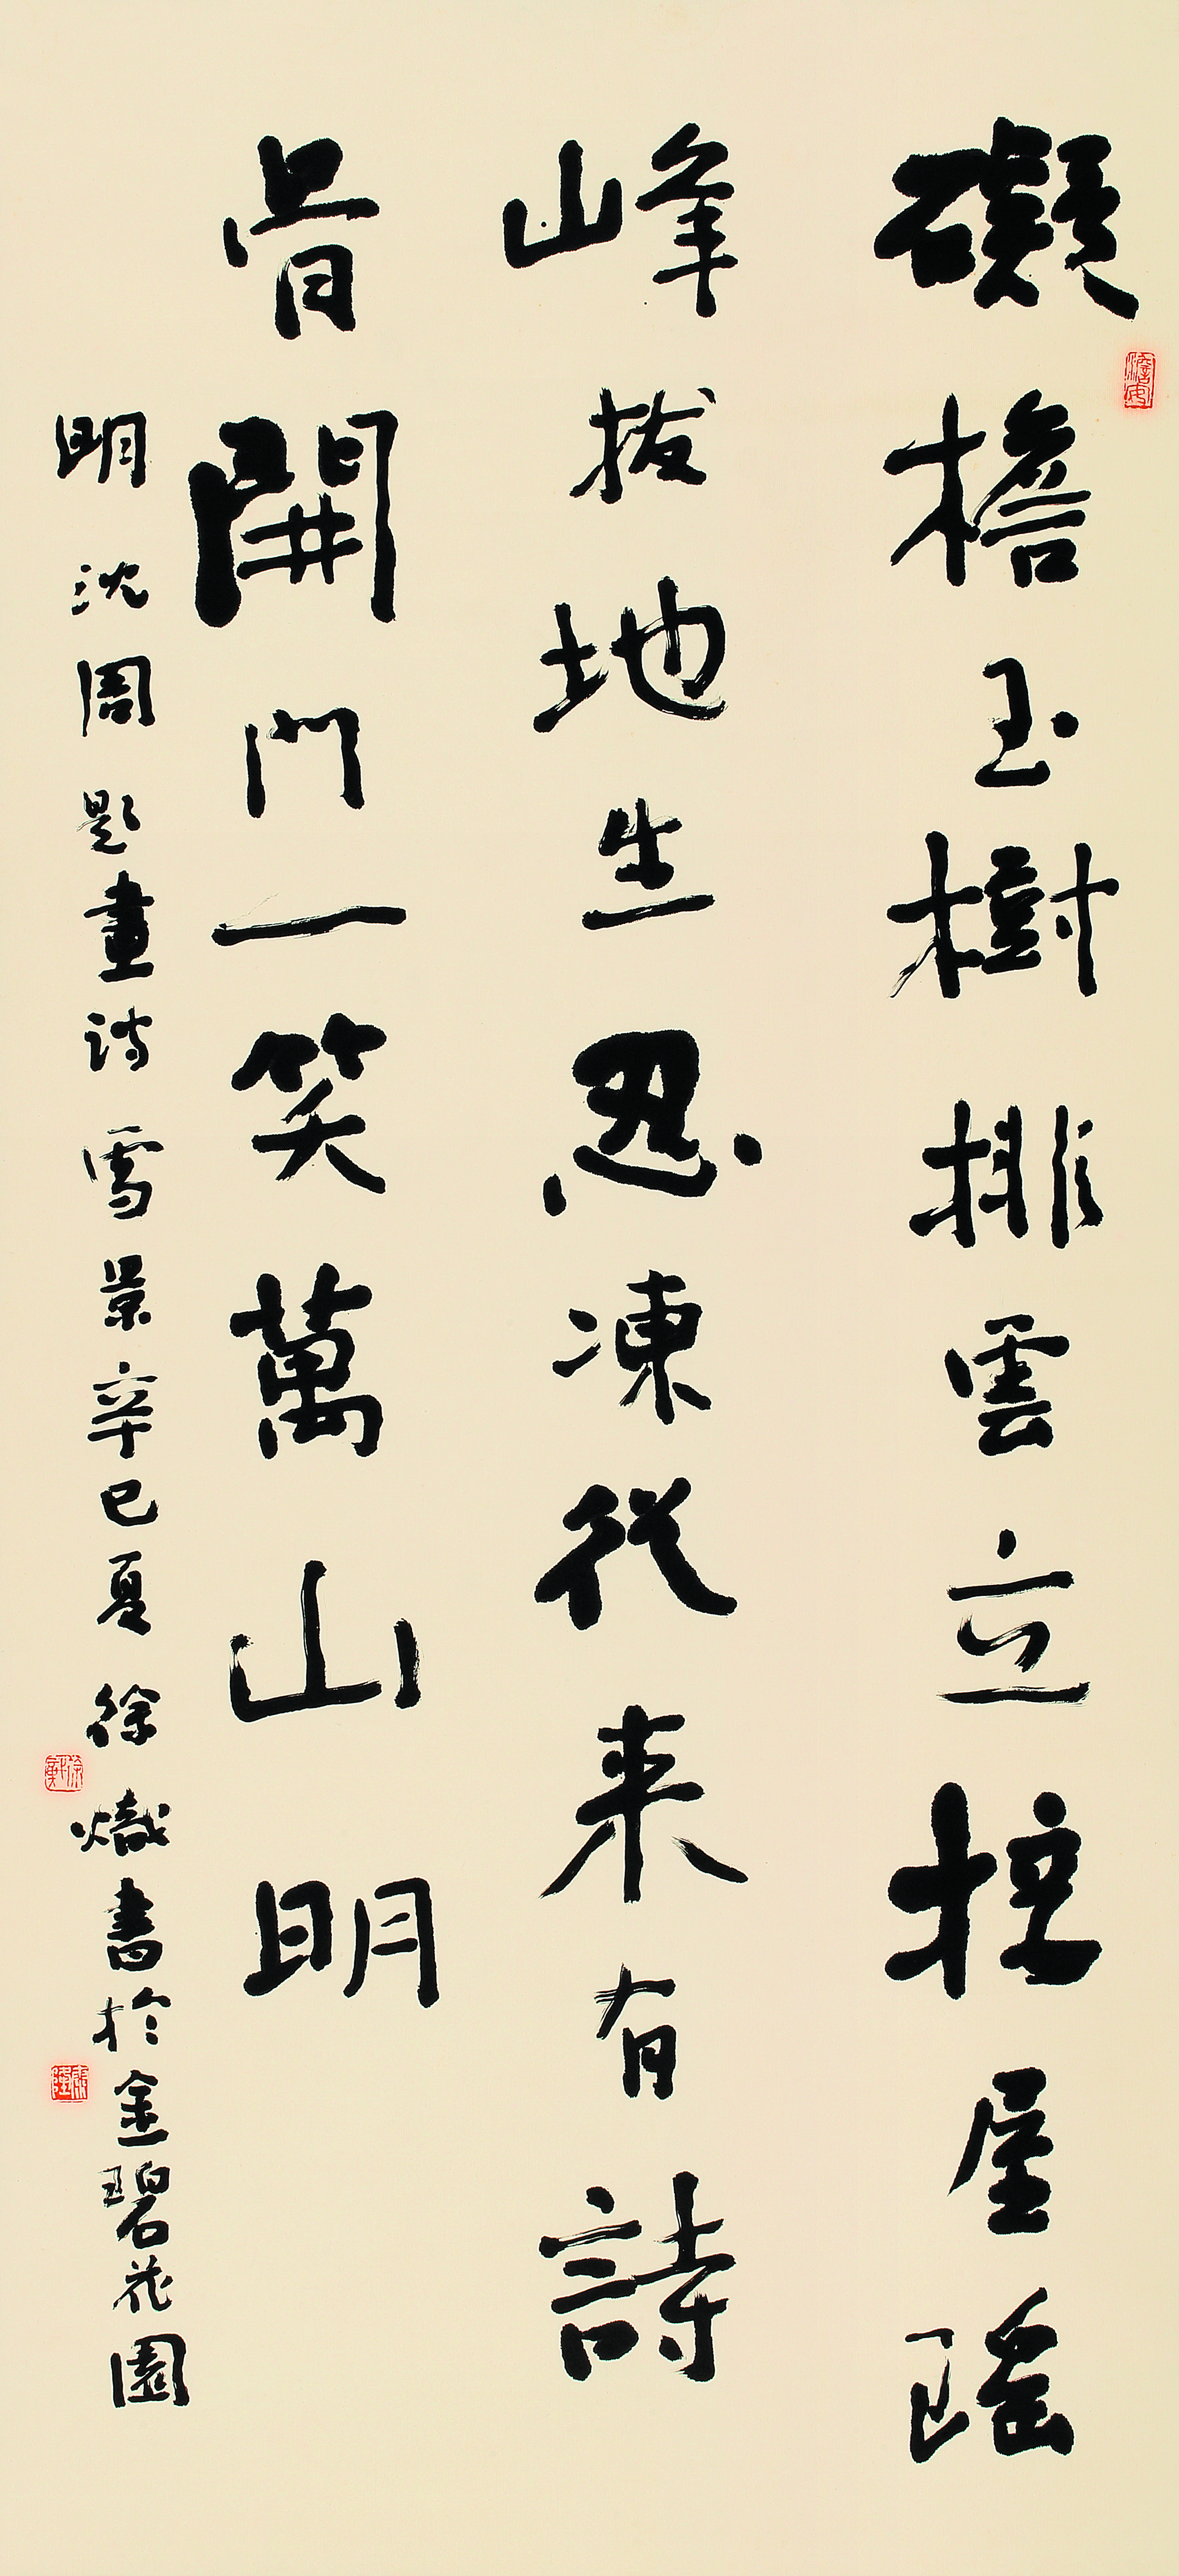 礙檐玉樹排雲立挖屋瑤
峰拔地生忍凍從来有詩
骨開門一笑萬山明
明沈周題畫詩雪景辛巳夏徐熾書於金碧花園